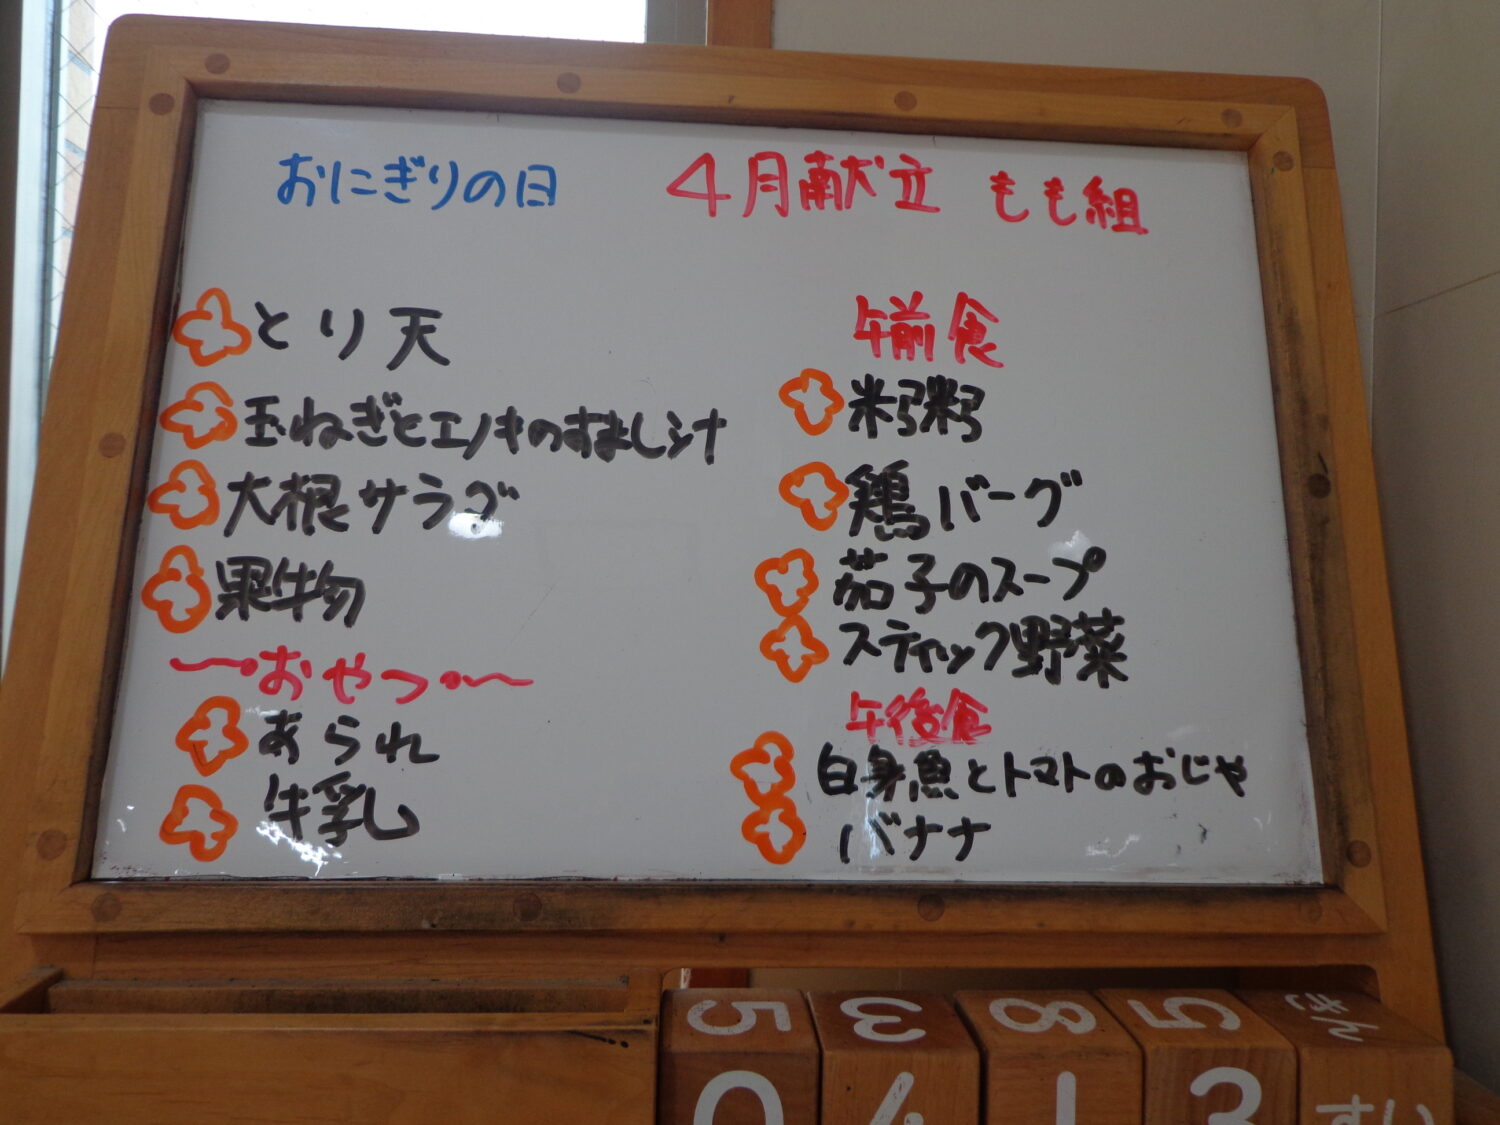 おにぎりの日
4月献立 もも組
とり天
玉ねぎとエノキのすまし汁
大根サラダ
果物
〜・おやつ・〜
あられ
牛乳
午前食
米粥
鶏バーグ
茄子のスープ
スティック野菜
午後食
白身魚とトマトのおじや
バナナ
5 3 8 5 きん
0 4 1 3 すい